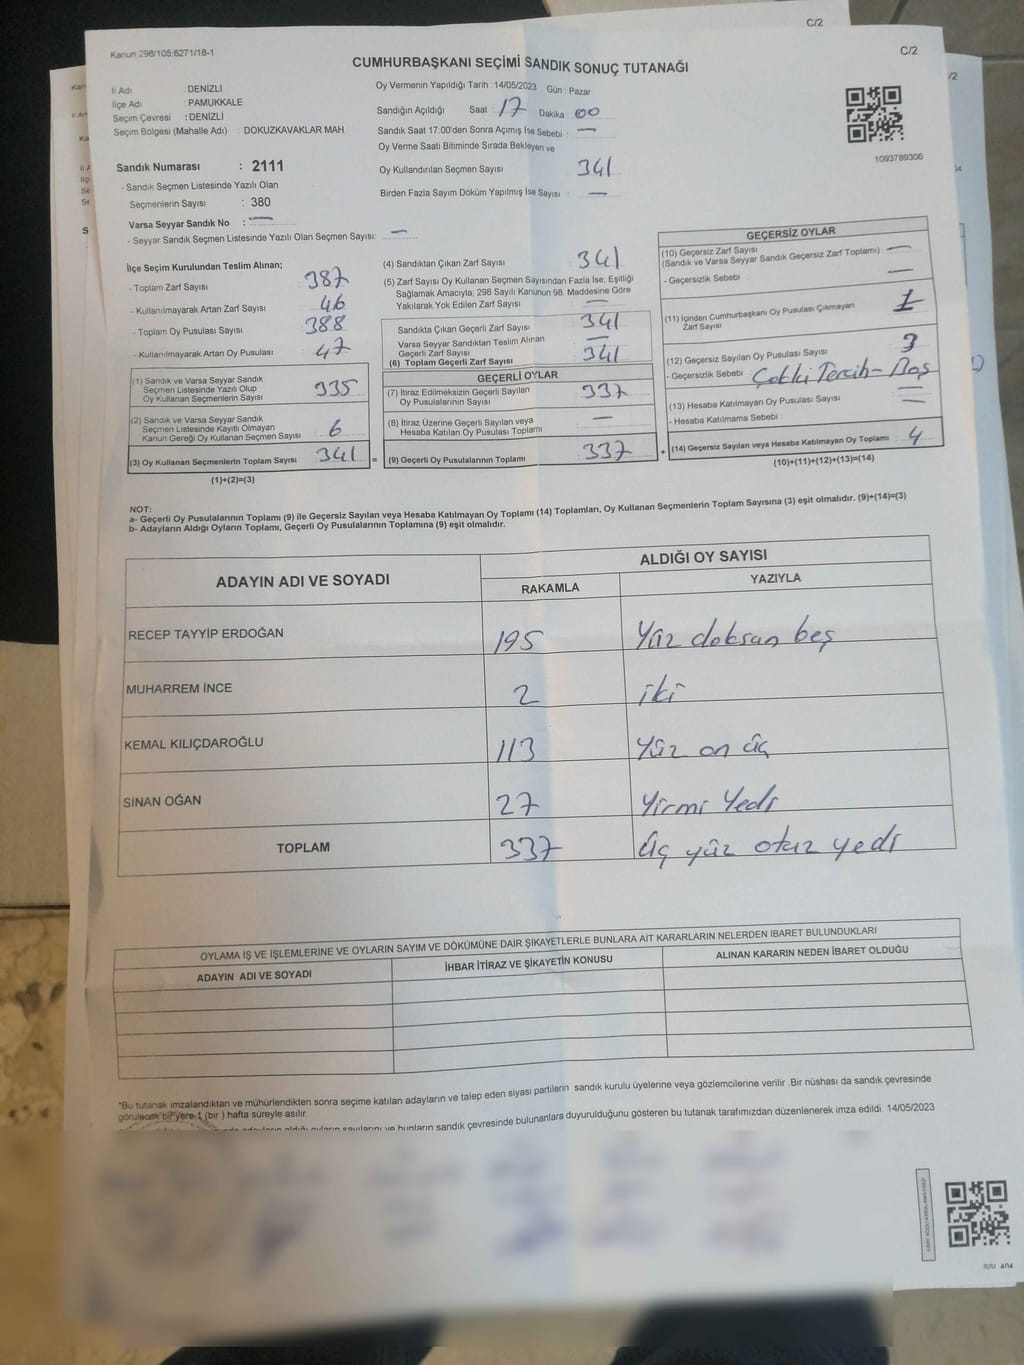 C/2
Kanun 298/105;6271/18-1
C/2
CUMHURBAŞKANI SEÇİMİ SANDIK SONUÇ TUTANAĞI
İl Adı : DENİZLİ
İlçe Adı : PAMUKKALE
Seçim Çevresi : DENİZLİ
Seçim Bölgesi (Mahalle Adı) : DOKUZKAVAKLAR MAH.
Oy Vermenin Yapıldığı Tarih : 14/05/2023 Gün : Pazar
Sandığın Açıldığı Saat : 17 Dakika : 00
Sandık Saat 17:00'den Sonra Açımış İse Sebebi : —
Oy Verme Saati Bitiminde Sırada Bekleyen ve
Oy Kullandırılan Seçmen Sayısı 341
Birden Fazla Sayım Döküm Yapılmış İse Sayısı : —
1093789306
Sandık Numarası : 2111
- Sandık Seçmen Listesinde Yazılı Olan
Seçmenlerin Sayısı : 380
Varsa Seyyar Sandık No : —
- Seyyar Sandık Seçmen Listesinde Yazılı Olan Seçmen Sayısı: —
İlçe Seçim Kurulundan Teslim Alınan;
- Toplam Zarf Sayısı : 387
- Kullanılmayarak Artan Zarf Sayısı : 46
- Toplam Oy Pusulası Sayısı : 388
- Kullanılmayarak Artan Oy Pusulası : 47
(1) Sandık ve Varsa Seyyar Sandık
Seçmen Listesinde Yazılı Olup
Oy Kullanan Seçmenlerin Sayısı : 335
(2) Sandık ve Varsa Seyyar Sandık
Seçmen Listesinde Kayıtlı Olmayan
Kanun Gereği Oy Kullanan Seçmen Sayısı : 6
(3) Oy Kullanan Seçmenlerin Toplam Sayısı : 341 =
(1)+(2)=(3)
(4) Sandıktan Çıkan Zarf Sayısı : 341
(5) Zarf Sayısı Oy Kullanan Seçmen Sayısından Fazla İse, Eşitliği
Sağlamak Amacıyla; 298 Sayılı Kanunun 98. Maddesine Göre
Yakılarak Yok Edilen Zarf Sayısı : —
Sandıkta Çıkan Geçerli Zarf Sayısı : 341
Varsa Seyyar Sandıktan Teslim Alınan
Geçerli Zarf Sayısı : —
(6) Toplam Geçerli Zarf Sayısı : 341
GEÇERLİ OYLAR
(7) İtiraz Edilmeksizin Geçerli Sayılan
Oy Pusulalarının Sayısı : 337
(8) İtiraz Üzerine Geçerli Sayılan veya
Hesaba Katılan Oy Pusulası Toplamı : —
(9) Geçerli Oy Pusulalarının Toplamı : 337 +
GEÇERSİZ OYLAR
(10) Geçersiz Zarf Sayısı
(Sandık ve Varsa Seyyar Sandık Geçersiz Zarf Toplamı) : —
- Geçersizlik Sebebi : —
(11) İçinden Cumhurbaşkanı Oy Pusulası Çıkmayan
Zarf Sayısı : 1
(12) Geçersiz Sayılan Oy Pusulası Sayısı : 3
- Geçersizlik Sebebi : Çoklu Tercih - Boş
(13) Hesaba Katılmayan Oy Pusulası Sayısı : —
- Hesaba Katılmama Sebebi : —
(14) Geçersiz Sayılan veya Hesaba Katılmayan Oy Toplamı : 4
(10)+(11)+(12)+(13)=(14)
NOT:
a- Geçerli Oy Pusulalarının Toplamı (9) ile Geçersiz Sayılan veya Hesaba Katılmayan Oy Toplamı (14) Toplamları, Oy Kullanan Seçmenlerin Toplam Sayısına (3) eşit olmalıdır. (9)+(14)=(3)
b- Adayların Aldığı Oyların Toplamı, Geçerli Oy Pusulalarının Toplamına (9) eşit olmalıdır.
ADAYIN ADI VE SOYADI
ALDIĞI OY SAYISI
RAKAMLA YAZIYLA
RECEP TAYYİP ERDOĞAN 195 Yüz doksan beş
MUHARREM İNCE 2 iki
KEMAL KILIÇDAROĞLU 113 Yüz on üç
SİNAN OĞAN 27 Yirmi Yedi
TOPLAM 337 Üç yüz otuz yedi
OYLAMA İŞ VE İŞLEMLERİNE VE OYLARIN SAYIM VE DÖKÜMÜNE DAİR ŞİKAYETLERLE BUNLARA AİT KARARLARIN NELERDEN İBARET BULUNDUKLARI
ADAYIN ADI VE SOYADI İHBAR İTİRAZ VE ŞİKAYETİN KONUSU ALINAN KARARIN NEDEN İBARET OLDUĞU
*Bu tutanak imzalandıktan ve mühürlendikten sonra seçime katılan adayların ve talep eden siyasi partilerin sandık kurulu üyelerine veya gözlemcilerine verilir .Bir nüshası da sandık çevresinde
görülecek bir yere 1 (bir ) hafta süreyle asılır.
adayların aldığı oyların sayılarını ve bunların sandık çevresinde bulunanlara duyurulduğunu gösteren bu tutanak tarafımızdan düzenlenerek imza edildi. 14/05/2023